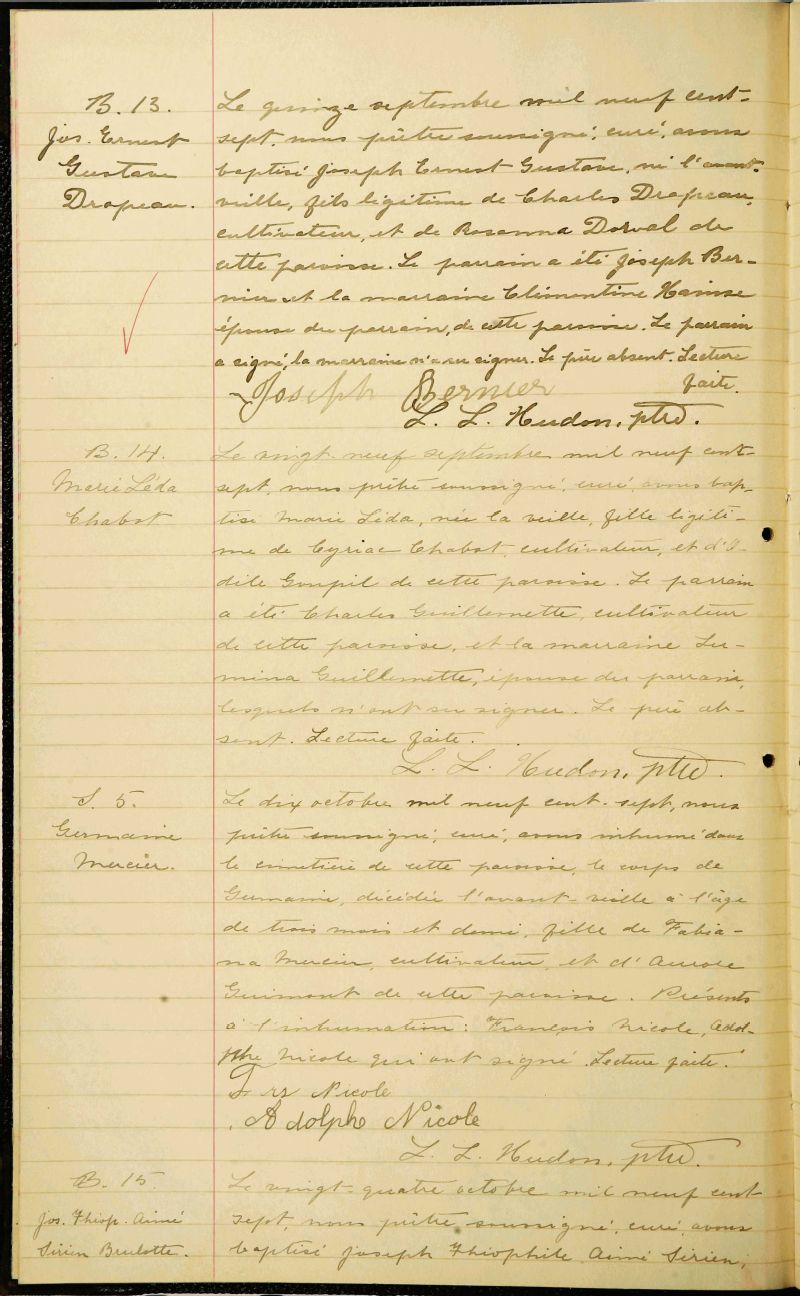 B. 13.
Jos. Ernest
Gustave
Drapeau.
Le quinze septembre mil neuf cent-
sept, nous prêtre soussigné, curé, avons
baptisé Joseph Ernest Gustave, né l'avant-
veille, fils légitime de Charles Drapeau,
cultivateur, et de Rosanna Dorval de
cette paroisse. Le parrain a été Joseph Ber-
nier et la marraine Clémentine
épouse du parrain, de cette paroisse. Le parrain
a signé, la marraine n'a su signer. Le père absent. Lecture
faite.
Joseph Bernier
L. L. Hudon, ptre.
B. 14.
Marie Léda
Chabot
Le vingt neuf septembre mil neuf cent-
sept, nous prêtre soussigné, curé, avons bap-
tisé Marie Léda, née la veille, fille légiti-
me de Cyriac Chabot, cultivateur, et d'O-
dile Goupil de cette paroisse. Le parrain
a été Charles Guillemette, cultivateur
de cette paroisse, et la marraine
mina Guillemette, épouse du parrain,
lesquels n'ont su signer. Le père ab-
sent. Lecture faite.
L. L. Hudon, ptre.
S. 5.
Germaine
Mercier.
Le dix octobre mil neuf cent-sept, nous
prêtre soussigné, curé, avons inhumé dans
le cimetière de cette paroisse, le corps de
Germaine, décédée l'avant-veille à l'âge
de trois mois et demi, fille de Fabia-
na Mercier, cultivateur, et d'Aurore
Guimont de cette paroisse. Présents
à l'inhumation: François Nicole, Adol-
phe Nicole qui ont signé. Lecture faite.
Frs Nicole
Adolphe Nicole
L. L. Hudon, ptre.
B. 15
Jos. Théop. Aimé
Sirien Brulotte.
Le vingt-quatre octobre mil neuf cent
sept, nous prêtre soussigné, curé, avons
baptisé Joseph Théophile Aimé Sirien,